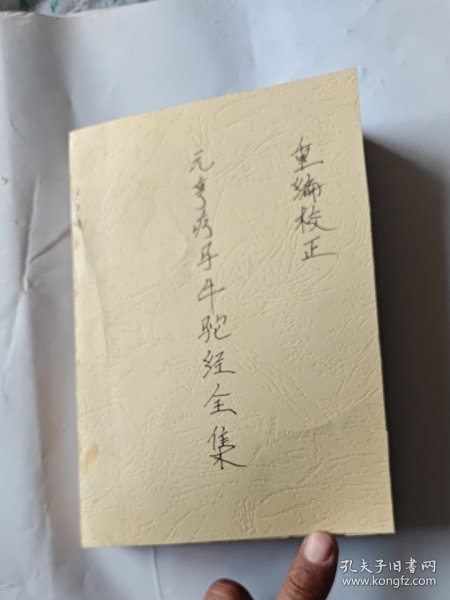 重编校正
元亨疗马牛驼经全集
孔夫子旧书网
www.kongfz.com